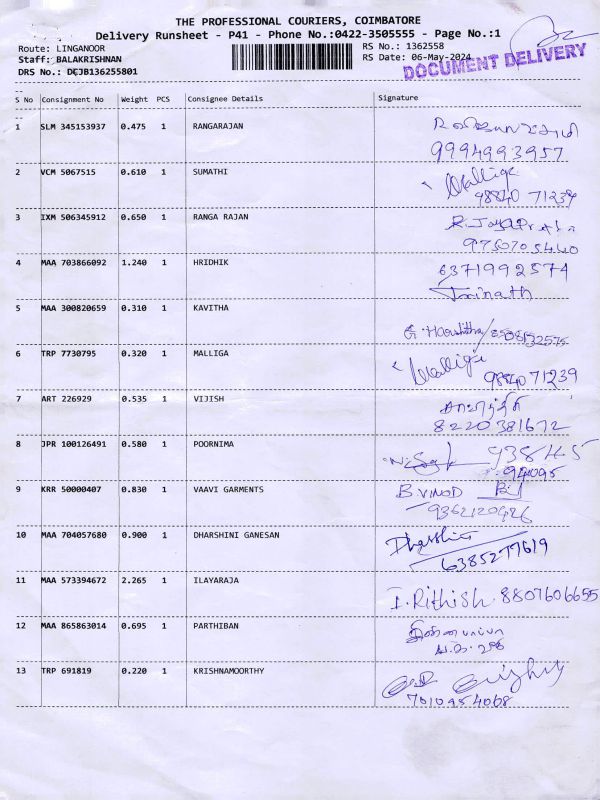 THE PROFESSIONAL COURIERS, COIMBATORE
Delivery Runsheet - P41 - Phone No.:0422-3505555 - Page No.:1
Route: LINGANOOR RS No.: 1362558
Staff: BALAKRISHNAN RS Date: 06-May-2024
DRS No.: DCJB136255801 DOCUMENT DELIVERY
S No Consignment No Weight PCS Consignee Details Signature
1 SLM 345153937 0.475 1 RANGARAJAN
9994993957
2 VCM 5067515 0.610 1 SUMATHI Malliga
98840 71239
3 IXM 506345912 0.650 1 RANGA RAJAN R. JayaPratha
9750705440
4 MAA 703866092 1.240 1 HRIDHIK 6371992574
Trinath
5 MAA 300820659 0.310 1 KAVITHA
G. Harshitha/8508132575
6 TRP 7730795 0.320 1 MALLIGA Malliga
98840 71239
7 ART 226929 0.535 1 VIJISH
8220381672
8 JPR 100126491 0.580 1 POORNIMA 93845
94095
9 KRR 50000407 0.830 1 VAAVI GARMENTS B.VINOD
9362120926
10 MAA 704057680 0.900 1 DHARSHINI GANESAN Dharshini
6385277619
11 MAA 573394672 2.265 1 ILAYARAJA I. Rithish 8807606655
12 MAA 865863014 0.695 1 PARTHIBAN
13 TRP 691819 0.220 1 KRISHNAMOORTHY
7010954068